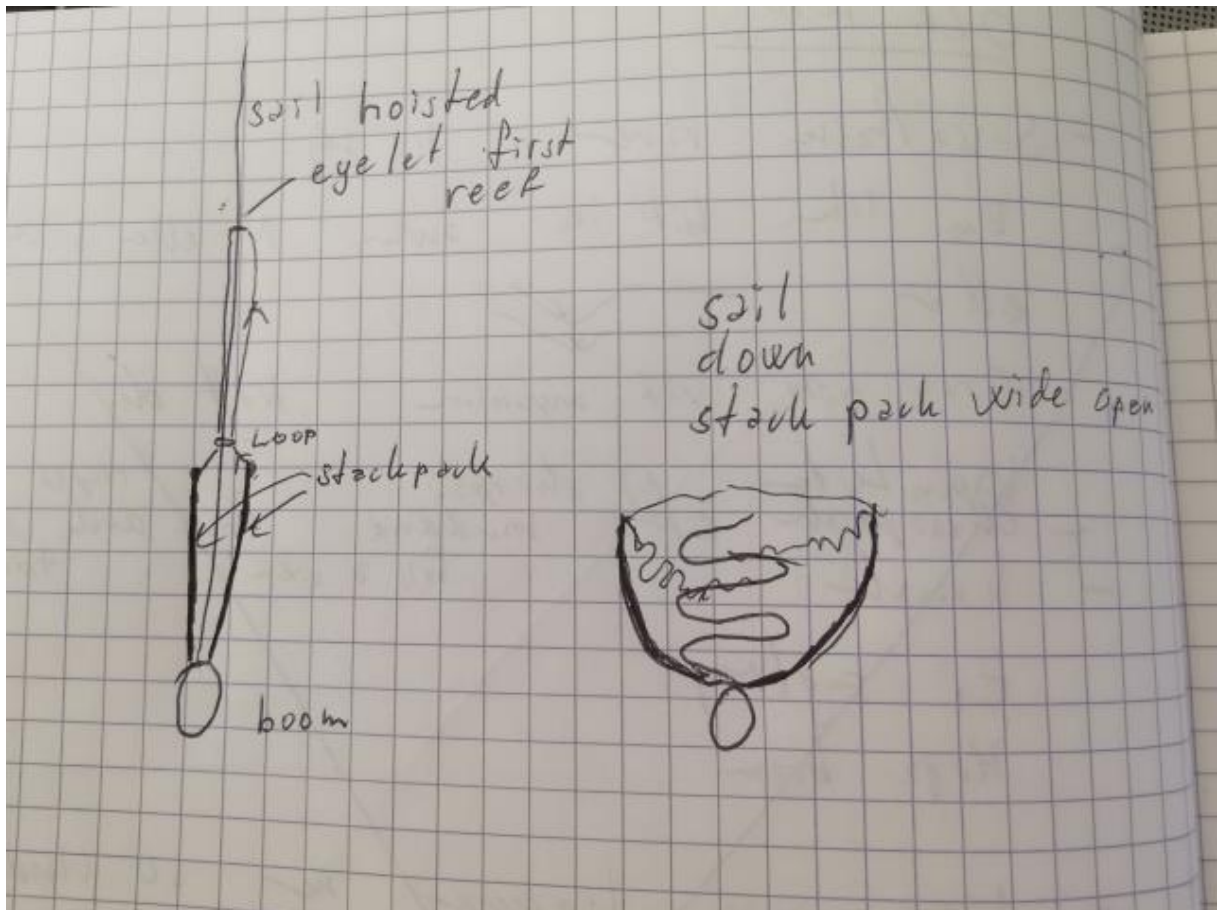 sail hoisted
eyelet first
reef
LOOP
stackpack
boom
sail
down
stack pack wide open